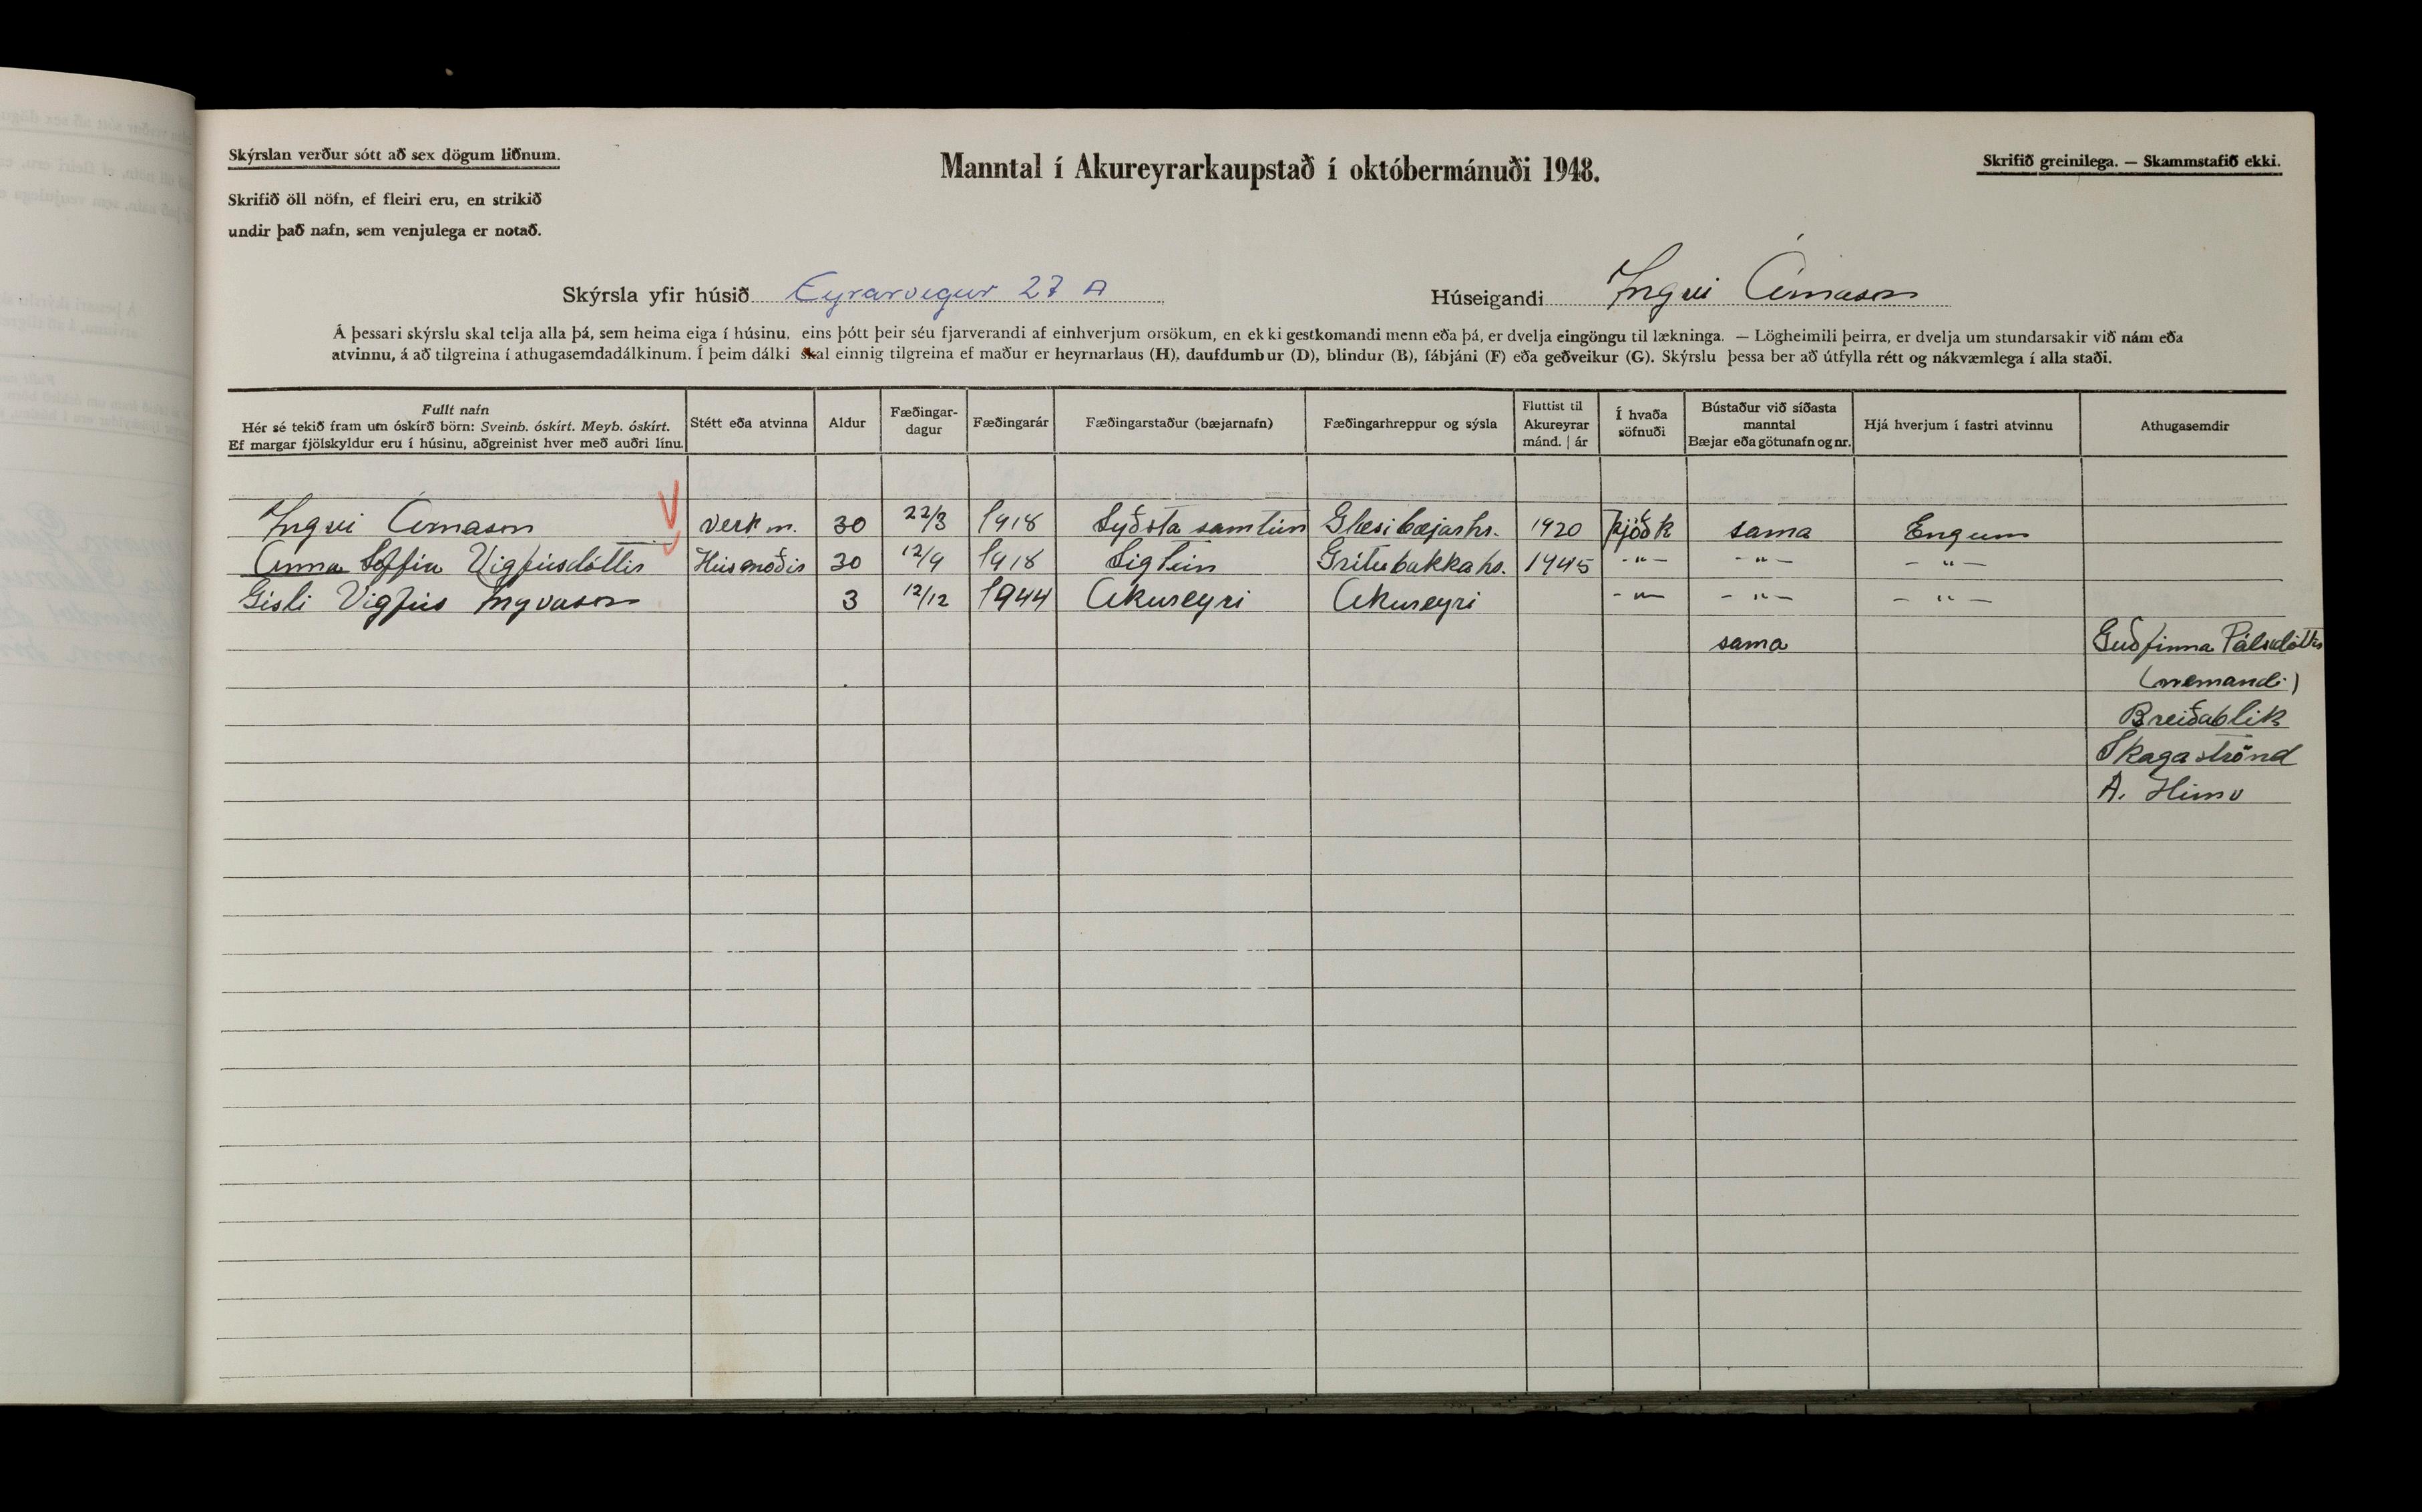 Skýrslan verður sótt að sex dögum liðnum.
Skrifið öll nöfn, ef fleiri eru, en strikið
undir það nafn, sem venjulega er notað.
Manntal í Akureyrarkaupstað í októbermánuði 1948.
Skrifið greinilega. — Skammstafið ekki.
Skýrsla yfir húsið Eyrarvegur 27 A
Húseigandi Yngvi Árnason
Á þessari skýrslu skal telja alla þá, sem heima eiga í húsinu, eins þótt þeir séu fjarverandi af einhverjum orsökum, en ekki gestkomandi menn eða þá, er dvelja eingöngu til lækninga. — Lögheimili þeirra, er dvelja um stundarsakir við nám eða
atvinnu, á að tilgreina í athugasemdadálkinum. Í þeim dálki skal einnig tilgreina ef maður er heyrnarlaus (H), daufdumbur (D), blindur (B), fábjáni (F) eða geðveikur (G). Skýrslu þessa ber að útfylla rétt og nákvæmlega í alla staði.
Fullt nafn
Hér sé tekið fram um óskírð börn: Sveinb. óskírt. Meyb. óskírt.
Ef margar fjölskyldur eru í húsinu, aðgreinist hver með auðri línu.
Stétt eða atvinna
Aldur
Fæðingar-
dagur
Fæðingarár
Fæðingarstaður (bæjarnafn)
Fæðingarhreppur og sýsla
Fluttist til
Akureyrar
mánd. | ár
Í hvaða
söfnuði
Bústaður við síðasta
manntal
Bæjar eða götunafn og nr.
Hjá hverjum í fastri atvinnu
Athugasemdir
Yngvi Árnason verk m. 30 22/3 1918 Syðsta samtún Glæsibæjarhr. 1920 þjóðk sama Engum
Anna Soffía Vigfúsdóttir Húsmóðir 30 12/9 1918 Sigtún Grítubakkahr. 1945 -"- -"- -"-
Gísli Vigfús Yngvason 3 12/12 1944 Akureyri Akureyri -"- -"- -"-
sama Guðfinna Pálsdóttir
(nemandi)
Breiðablik
Skagaströnd
A. Húnv